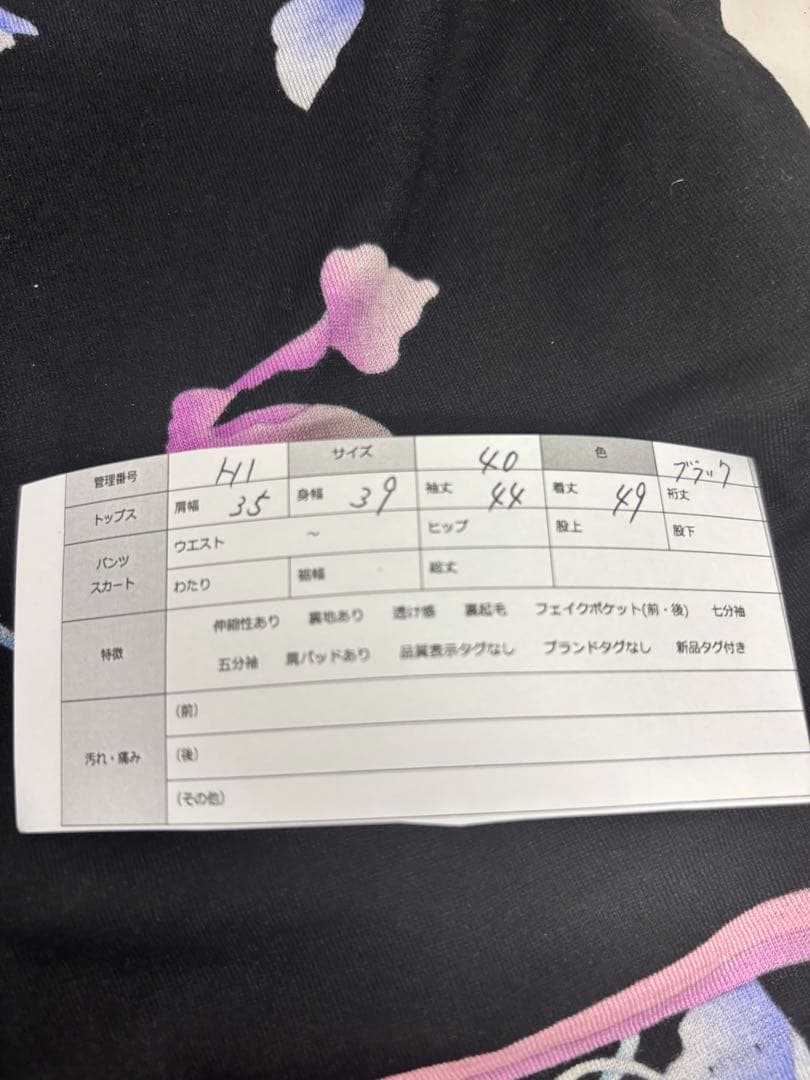 管理番号 H1 サイズ 40 色 ブラック
トップス 肩幅 35 身幅 39 袖丈 44 着丈 49 裄丈
パンツ スカート ウエスト ～ ヒップ 股上 股下
わたり 裾幅 総丈
特徴 伸縮性あり 裏地あり 透け感 裏起毛 フェイクポケット(前・後) 七分袖
五分袖 肩パッドあり 品質表示タグなし ブランドタグなし 新品タグ付き
汚れ・痛み (前)
(後)
(その他)